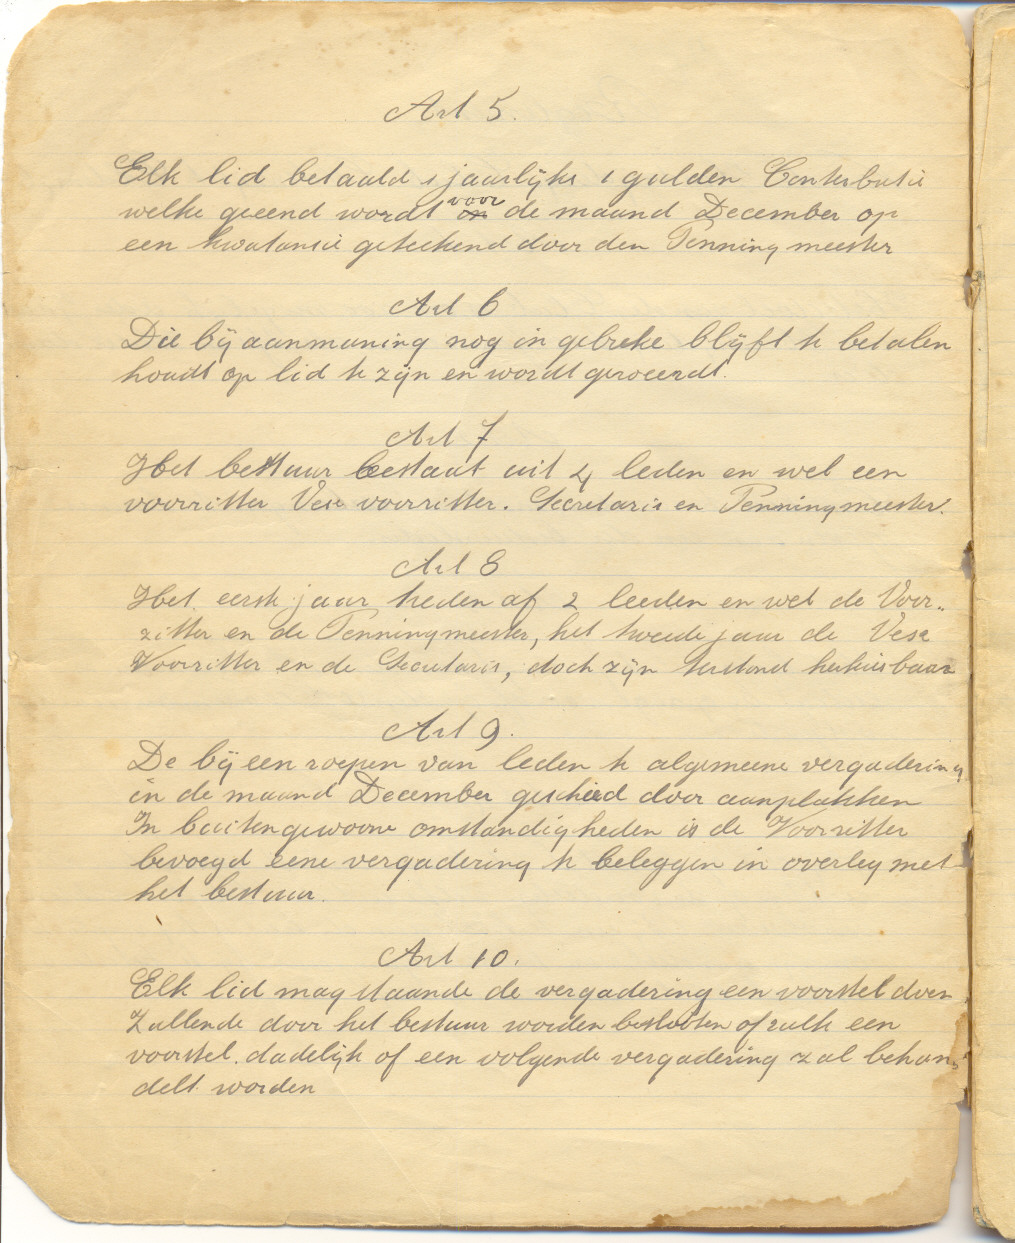 Art 5.
Elk lid betaald sjaarlijks 1 gulden Conterbutie
welke geeend wordt voor de maand December op
een kwatansie geteekend door den Penningmeester
Art 6
Die bij aanmaning nog in gebreke blijft te betalen
houdt op lid te zijn en wordt geroeerdt.
Art 7
Het bestuur bestaat uit 4 leden en wel een
voorzitter Vese voorzitter. Secretaris en Penningmeester.
Art 8
Het eerste jaar treden af 2 leeden en wel de Voor-
zitter en de Penningmeester, het tweede jaar de Vese
Voorzitter en de Secretaris, doch zijn terstond herkiesbaar
Art 9.
De bijeenroepen van leden te algemeene vergadering
in de maand December geschied door aanplakken
In buitengewoone omstandigheden is de Voorzitter
bevoegd eene vergadering te beleggen in overleg met
het bestuur.
Art 10.
Elk lid mag staande de vergadering een voorstel doen
Zullende door het bestuur worden beslooten of zulk een
voorstel dadelijk of een volgende vergadering zal behan-
delt worden